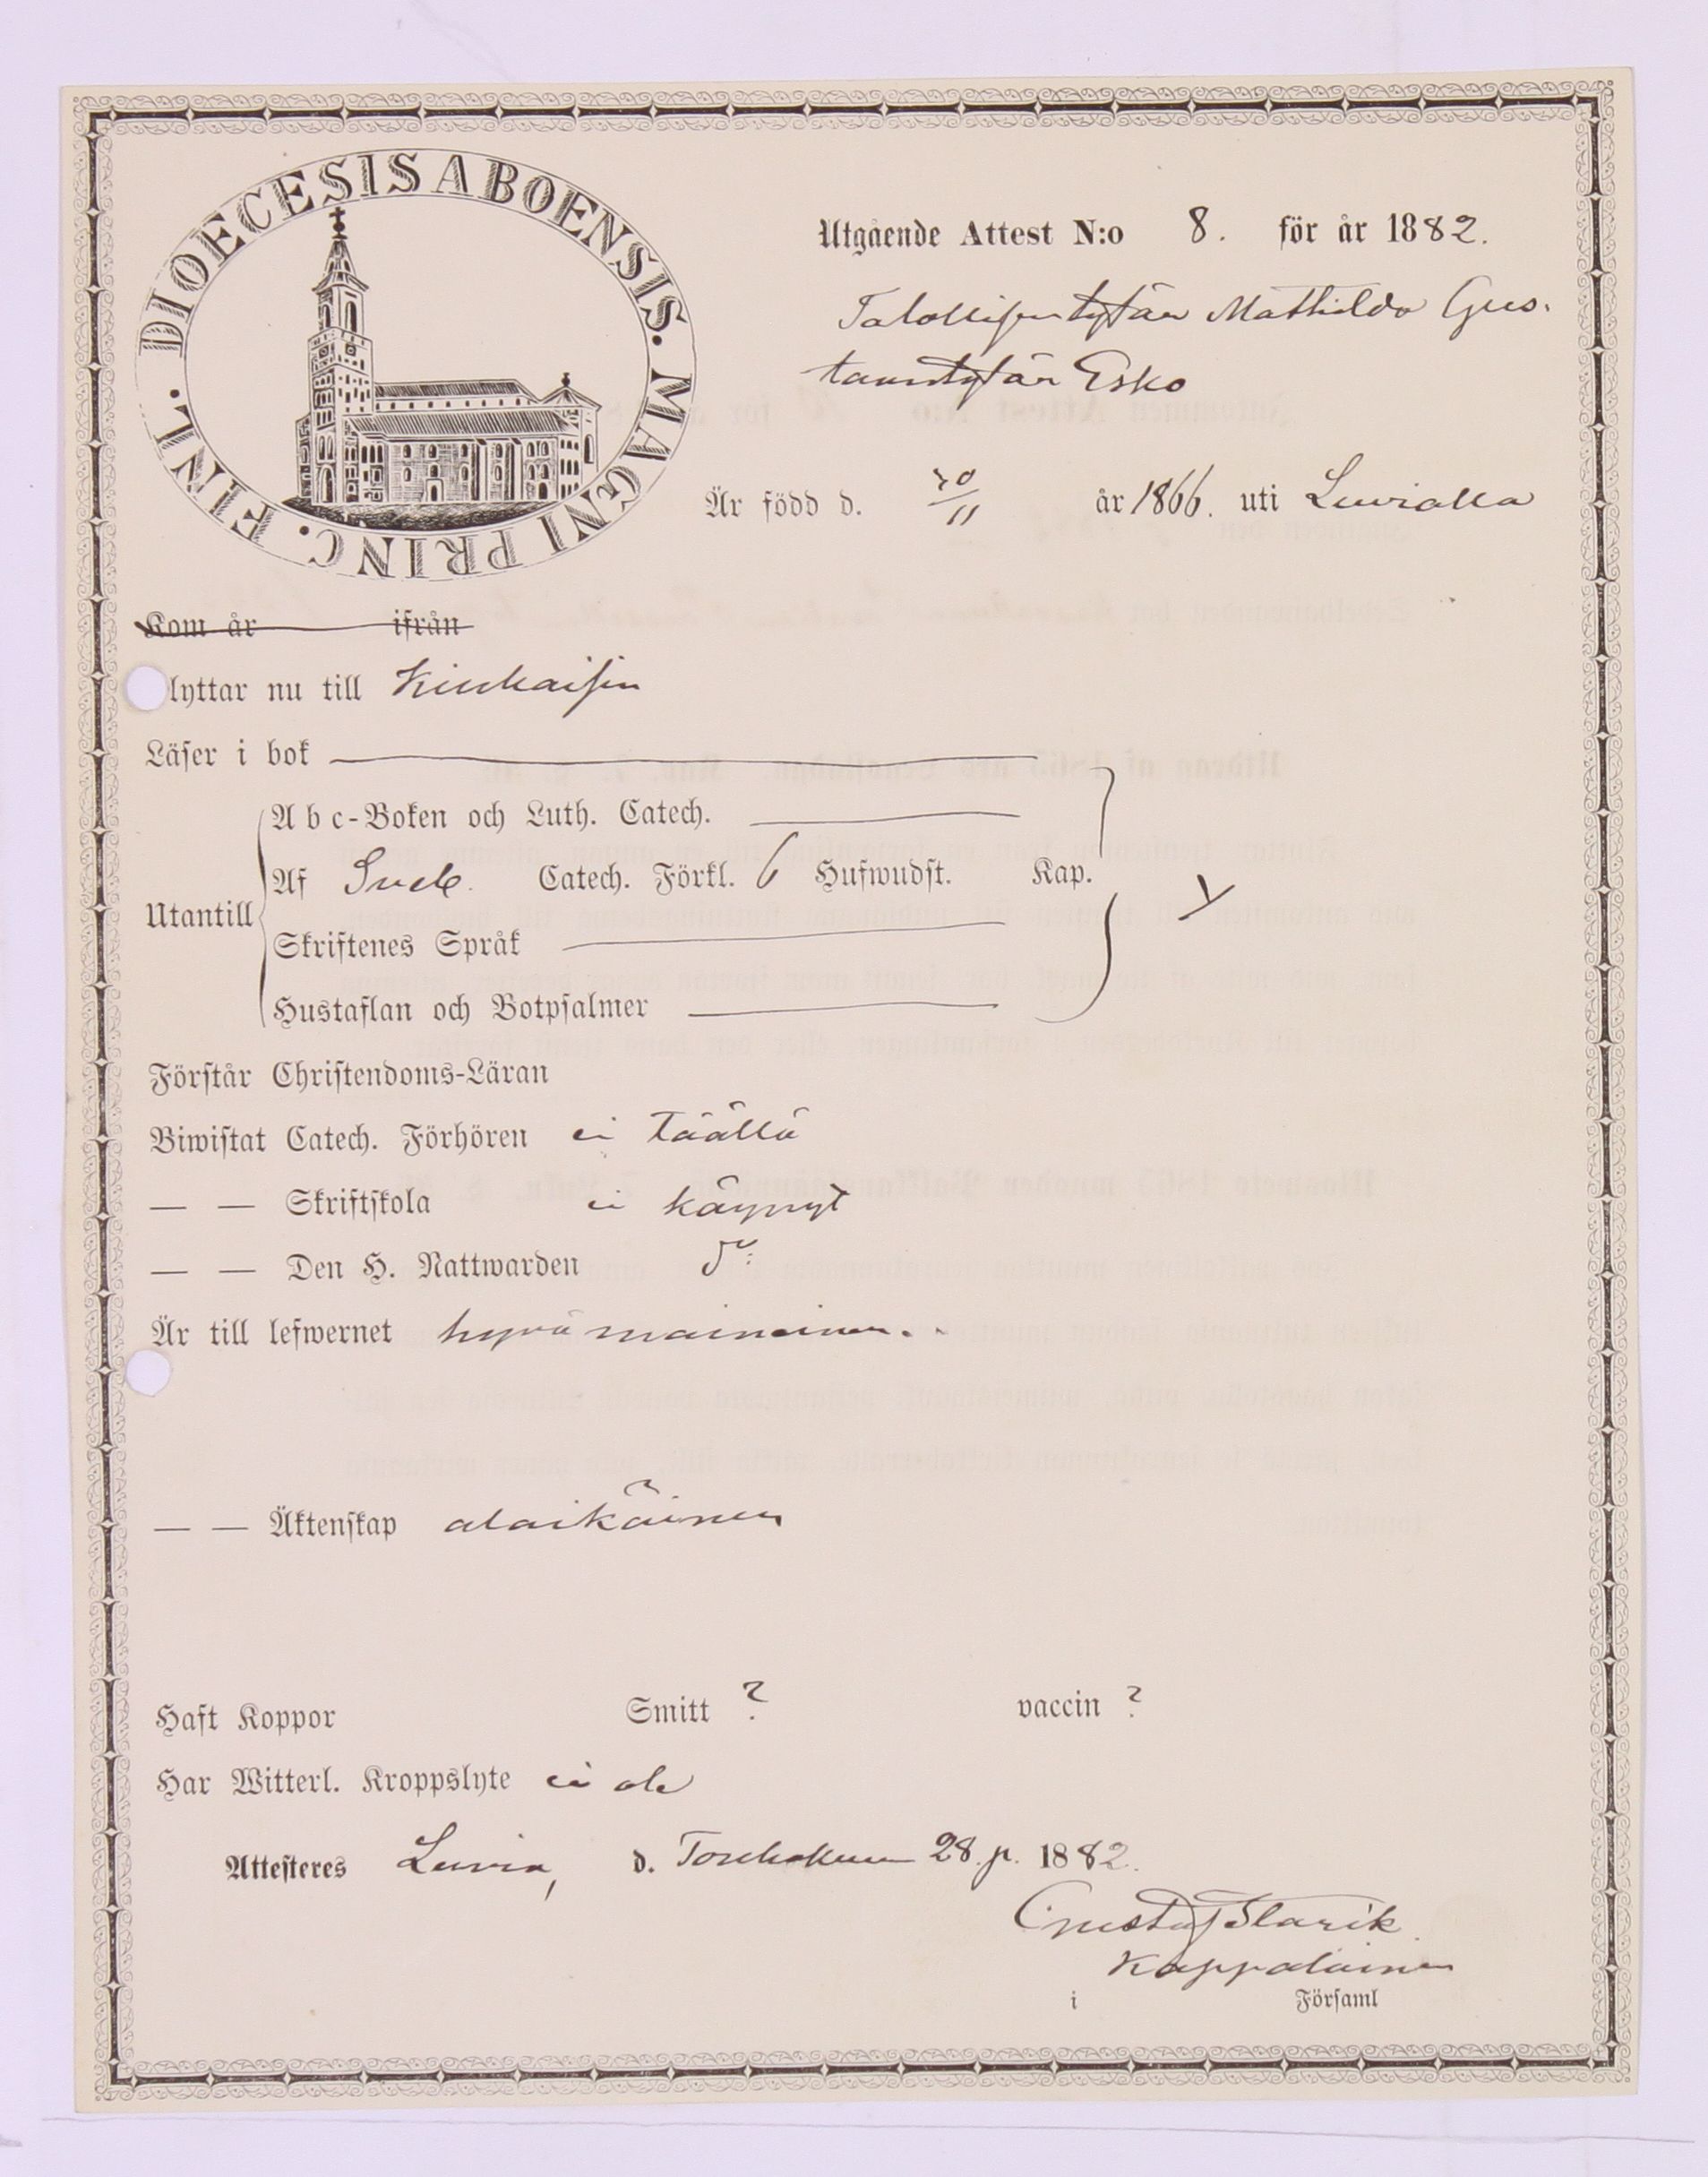 DIOECESIS ABOENSIS. MAGNI PRINC. FINL.
Utgående Attest N:o 8. för år 1882.
Talollisentytär Mathilda Gus-
taavintytär Esko
Är född d. 20/11 år 1866. uti Luvialla
Kom år ifrån
lyttar nu till Kiukaisiin
Läser i bok
A b c-Boken och Luth. Catech.
Af Sveb. Catech. Förkl. 6 Hufwudst. Kap.
Utantill
Skriftenes Språk
Hustaflan och Botpsalmer
Förstår Christendoms-Läran
Biwistat Catech. Förhören ei täällä
— — Skriftskola ei käynyt
— — Den H. Nattwarden do:
Är till lefwernet hyvämaineinen.
— — Äktenskap alaikäinen
Haft Koppor Smitt ? vaccin ?
Har Witterl. Kroppslyte ei ole
Attesteres Luvia, d. Toukokuun 28. p. 1882.
Gustaf Starik
Kappalainen
i Församl